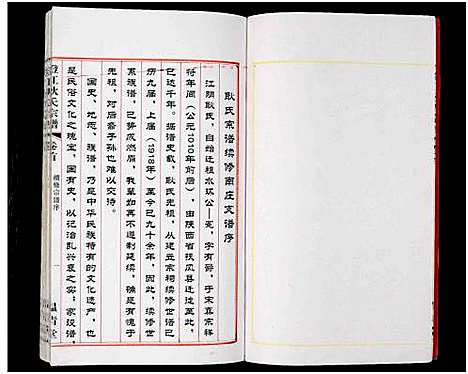 耿氏宗谱续修南庄支谱序
江阴耿氏，自始迁祖水坑公—宪，字有爵，于宋真宗祥
符年间（公元1010年前后），由陕西省扶风县迁徙至此，
已达千年。据谱史载，耿氏先祖，从建立宗祠续修世谱已
历九届，上届（1918年）至今已九十余年，因此，续修世
系族谱，已势成燃眉，我辈如再不遵制延续，确是有愧于
先祖，对后裔子孙也难以交待。
国史、地志、族谱，乃是中华民族特有的文化遗产，也
是民俗文化之瑰宝，国有史，是以记治乱兴衰之实；家设谱，
耿氏宗谱
卷首
续修宗谱序
一